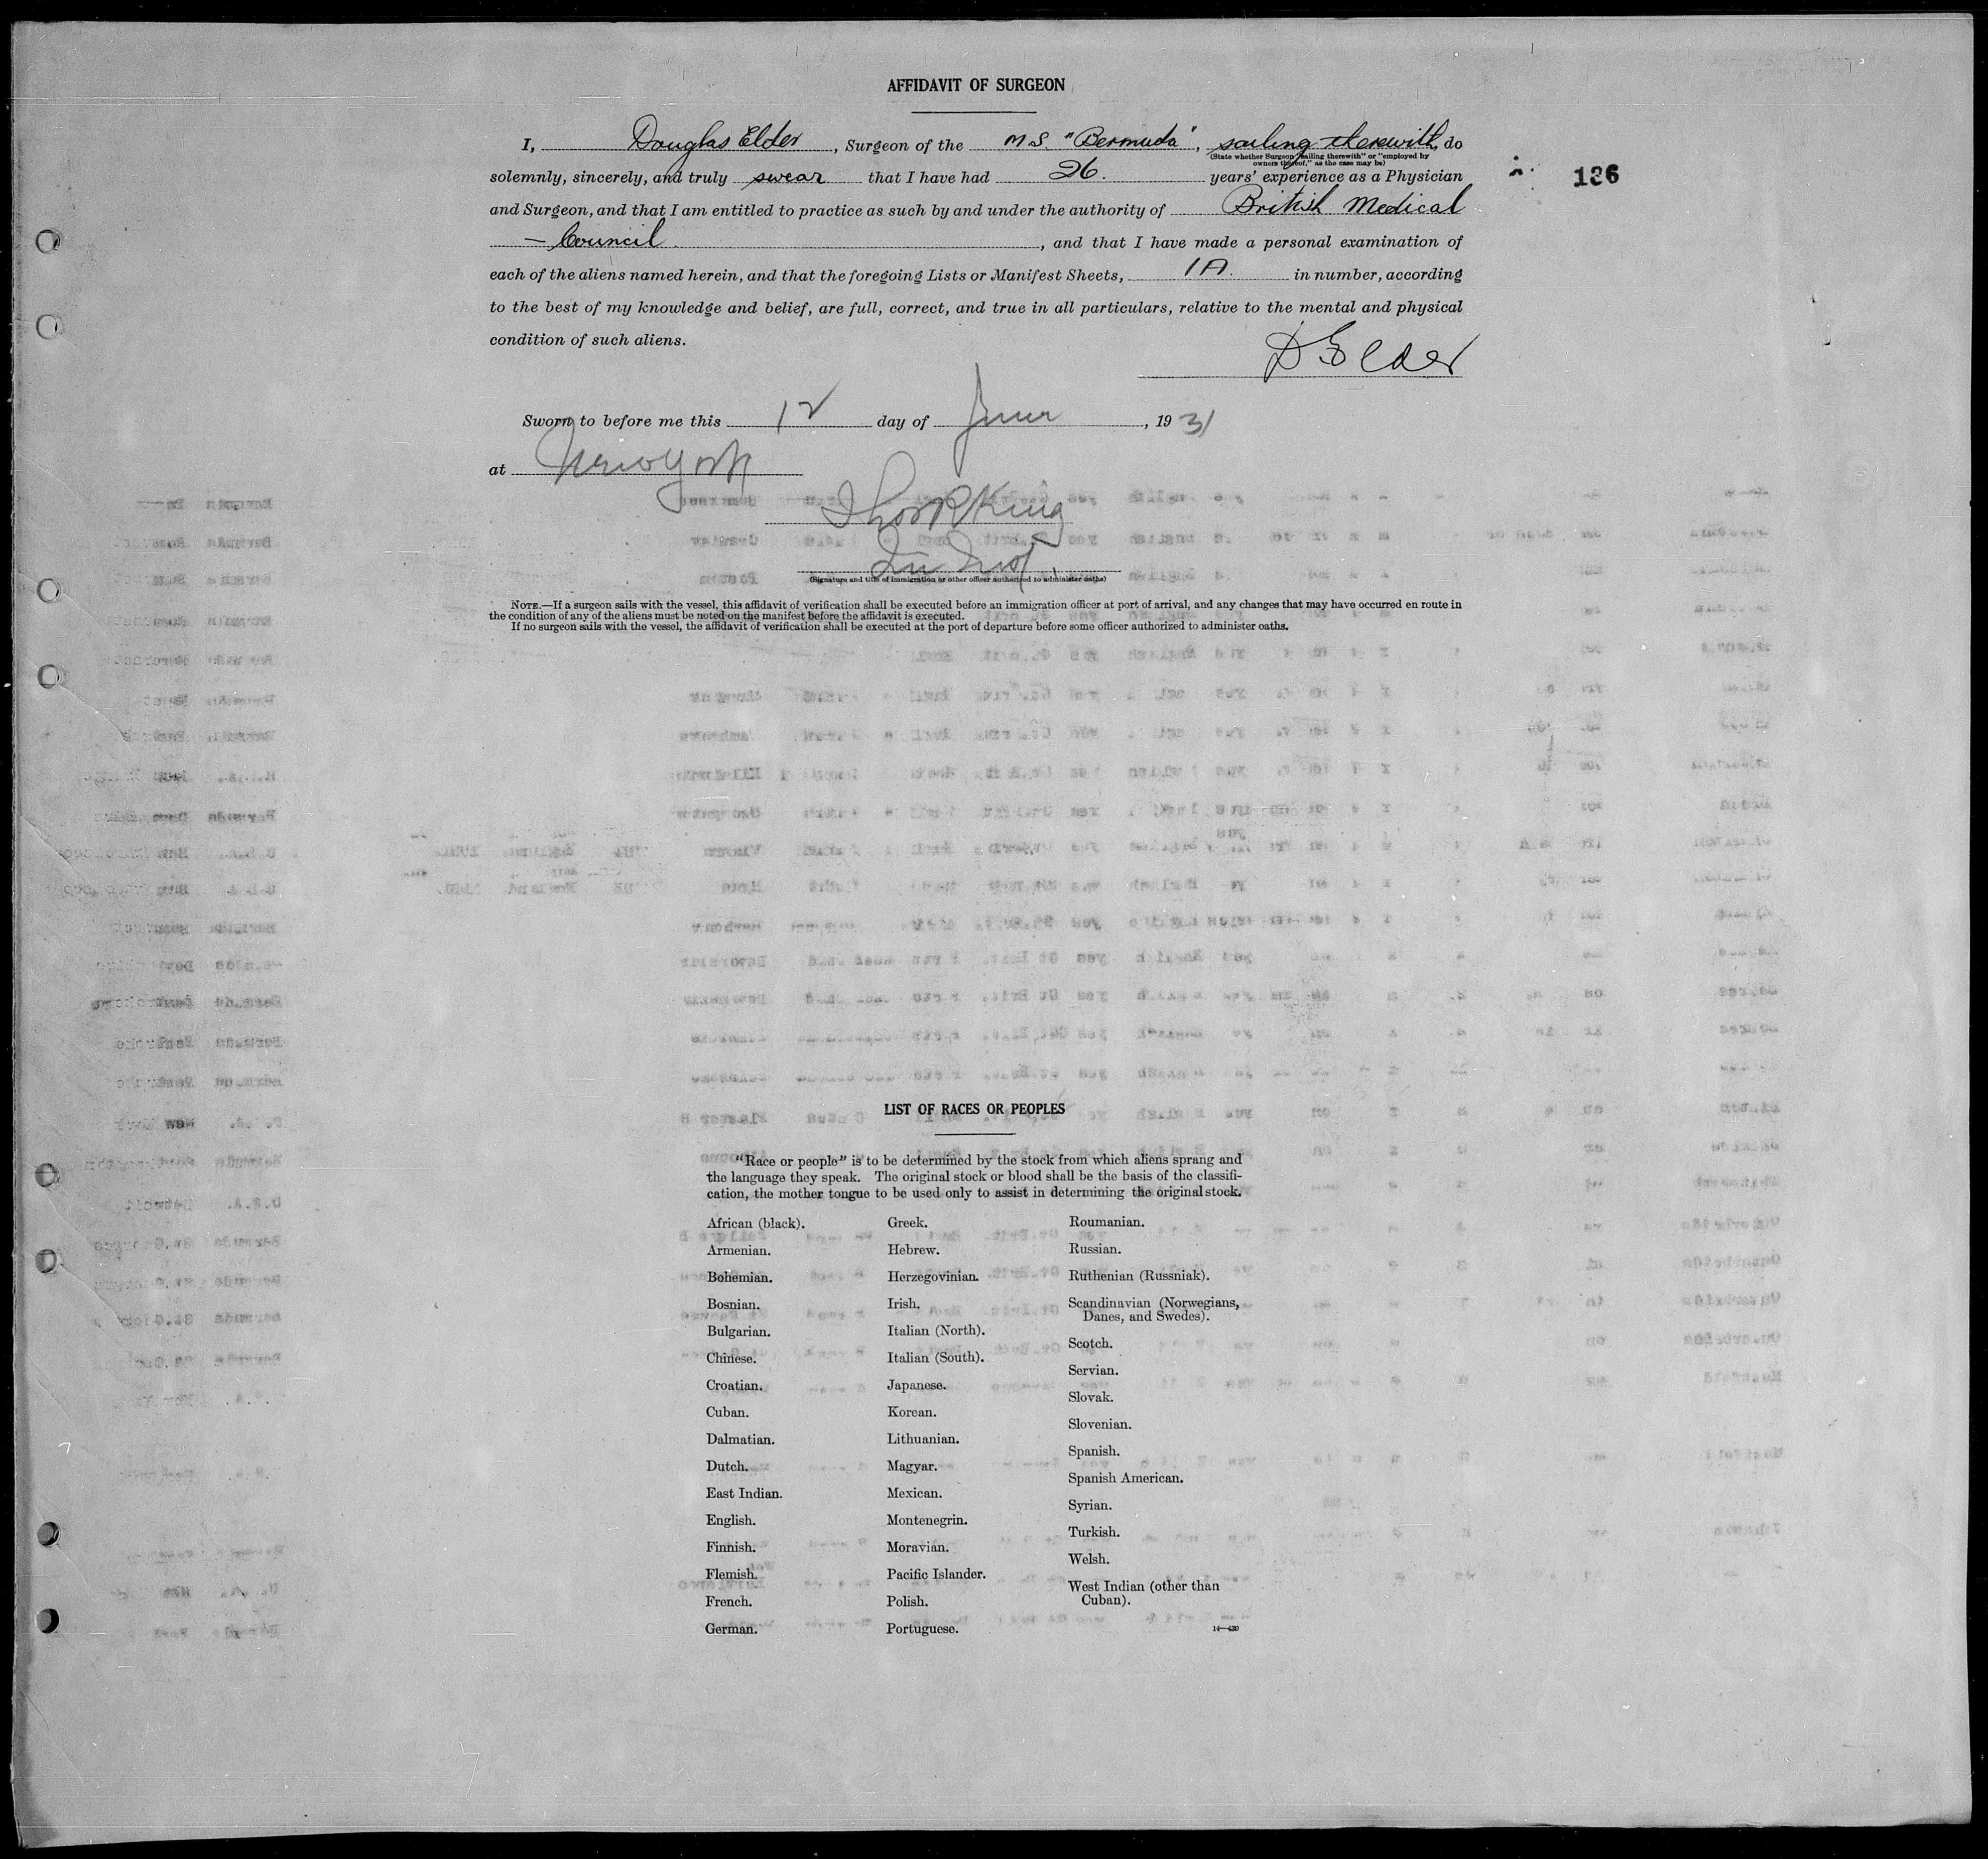 AFFIDAVIT OF SURGEON
I, Douglas Elder, Surgeon of the M.S. "Bermuda", sailing therewith, do
(State whether Surgeon "sailing therewith" or "employed by
owners thereof," as the case may be)
solemnly, sincerely, and truly swear that I have had 26. years' experience as a Physician
136
and Surgeon, and that I am entitled to practice as such by and under the authority of British Medical
— Council. , and that I have made a personal examination of
each of the aliens named herein, and that the foregoing Lists or Manifest Sheets, 1A. in number, according
to the best of my knowledge and belief, are full, correct, and true in all particulars, relative to the mental and physical
condition of such aliens.
D Elder
Sworn to before me this 12 day of June, 1931
at New York
King
(Signature and title of immigration or other officer authorized to administer oaths)
NOTE.—If a surgeon sails with the vessel, this affidavit of verification shall be executed before an immigration officer at port of arrival, and any changes that may have occurred en route in
the condition of any of the aliens must be noted on the manifest before the affidavit is executed.
If no surgeon sails with the vessel, the affidavit of verification shall be executed at the port of departure before some officer authorized to administer oaths.
LIST OF RACES OR PEOPLES
"Race or people" is to be determined by the stock from which aliens sprang and
the language they speak. The original stock or blood shall be the basis of the classifi-
cation, the mother tongue to be used only to assist in determining the original stock.
African (black).
Armenian.
Bohemian.
Bosnian.
Bulgarian.
Chinese.
Croatian.
Cuban.
Dalmatian.
Dutch.
East Indian.
English.
Finnish.
Flemish.
French.
German.
Greek.
Hebrew.
Herzegovinian.
Irish.
Italian (North).
Italian (South).
Japanese.
Korean.
Lithuanian.
Magyar.
Mexican.
Montenegrin.
Moravian.
Pacific Islander.
Polish.
Portuguese.
Roumanian.
Russian.
Ruthenian (Russniak).
Scandinavian (Norwegians,
Danes, and Swedes).
Scotch.
Servian.
Slovak.
Slovenian.
Spanish.
Spanish American.
Syrian.
Turkish.
Welsh.
West Indian (other than
Cuban).
14—430